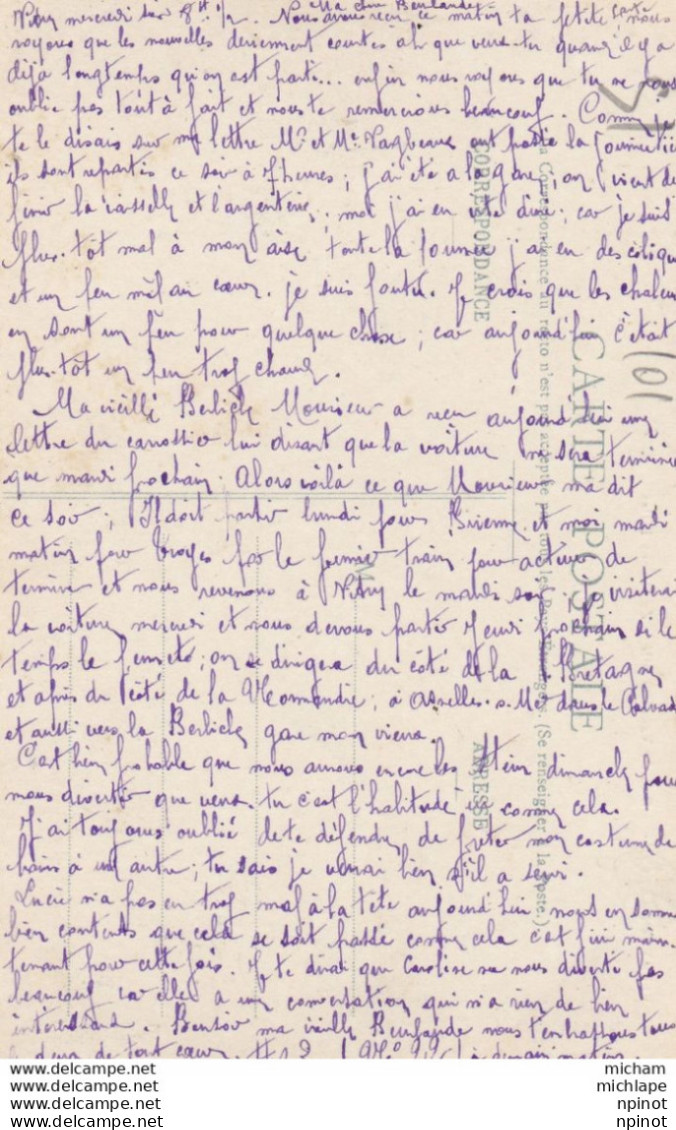 Vitry mercredi soir 8H 1/2. Nous avons reçu ce matin ta petite carte nous
voyons que les nouvelles deviennent courtes ah que veux-tu quand il y a
déjà longtemps qu'on est parti... enfin nous voyons que tu ne nous
oublie pas tout à fait et nous te remercions beaucoup. Comme je
te le disais sur ma lettre Mr et Me ont passé la journée ici
ils sont repartis ce soir à 7 heures; j'ai été à la gare, on vient de
finir la vaisselle et l'argenterie, moi j'ai eu une dure; car je suis
plus-tôt mal à mon aise toute la journée j'ai eu des coliques
et un peu mal au cœur. je suis foutu. Je crois que les chaleurs
en sont un peu pour quelque chose; car aujourd'hui c'était
plus-tôt un peu trop chaud.
Ma vieille Berlick Monsieur a reçu aujourd'hui une
lettre du carrossier lui disant que la voiture ne sera terminée
que mardi prochain. Alors voilà ce que Monsieur m'a dit
ce soir; Il doit partir lundi pour Brienne et moi mardi
matin pour Troyes par le premier train pour activer de
terminer et nous revenons à Vitry le mardi soir, visiterai
la voiture mercredi et nous devons partir Jeudi prochain si le
temps le permets; on se dirigera du côté de la Bretagne
et après du côté de la Normandie; à Asnelles-s-Mer dans le Calvados
et aussi vers la Berlick gare mon vieux.
C'est bien probable que nous aurons encore les Stein dimanche pour
nous divertir que veux-tu c'est l'habitude ici comme cela.
J'ai toujours oublié de te défendre de prêter mon costume de
bains à un autre; tu sais je verrai bien s'il a servi.
Lucie n'a pas eu trop mal à la tête aujourd'hui nous en sommes
bien contents que cela se soit passé comme cela c'est fini main-
tenant pour cette fois. Je te dirai que Caroline ne nous divertit pas
beaucoup car elle a une conversation qui n'a rien de bien
intéressant. Bonsoir ma vieille nous t'embrassons tous
deux de tout cœur. à demain matin.
CARTE POSTALE
CORRESPONDANCE
ADRESSE
La Correspondance au recto n'est pas acceptée par tous les Pays Étrangers. (Se renseigner à la Poste.)
101
www.delcampe.net micham
www.delcampe.net michlape
www.delcampe.net npinot
www.delcampe.net npinot